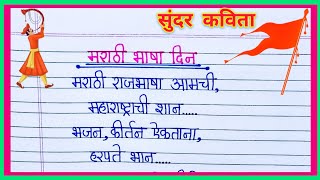 सुंदर कविता
मराठी भाषा दिन
मराठी राजभाषा आमची,
महाराष्ट्राची शान.....
भजन, कीर्तन ऐकताना,
हरपते भान.....